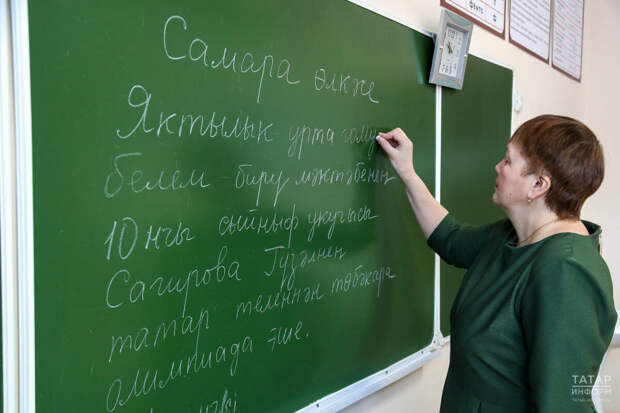 Самара өлкәсе
Яктылык урта гому
белем бирү мәктәбенең
10 нчы сыйныф укучысы
Сагирова Гүзәлнең
татар теленнән төбәкара
олимпиада эше.
ТАТАР
ИНФОРМ